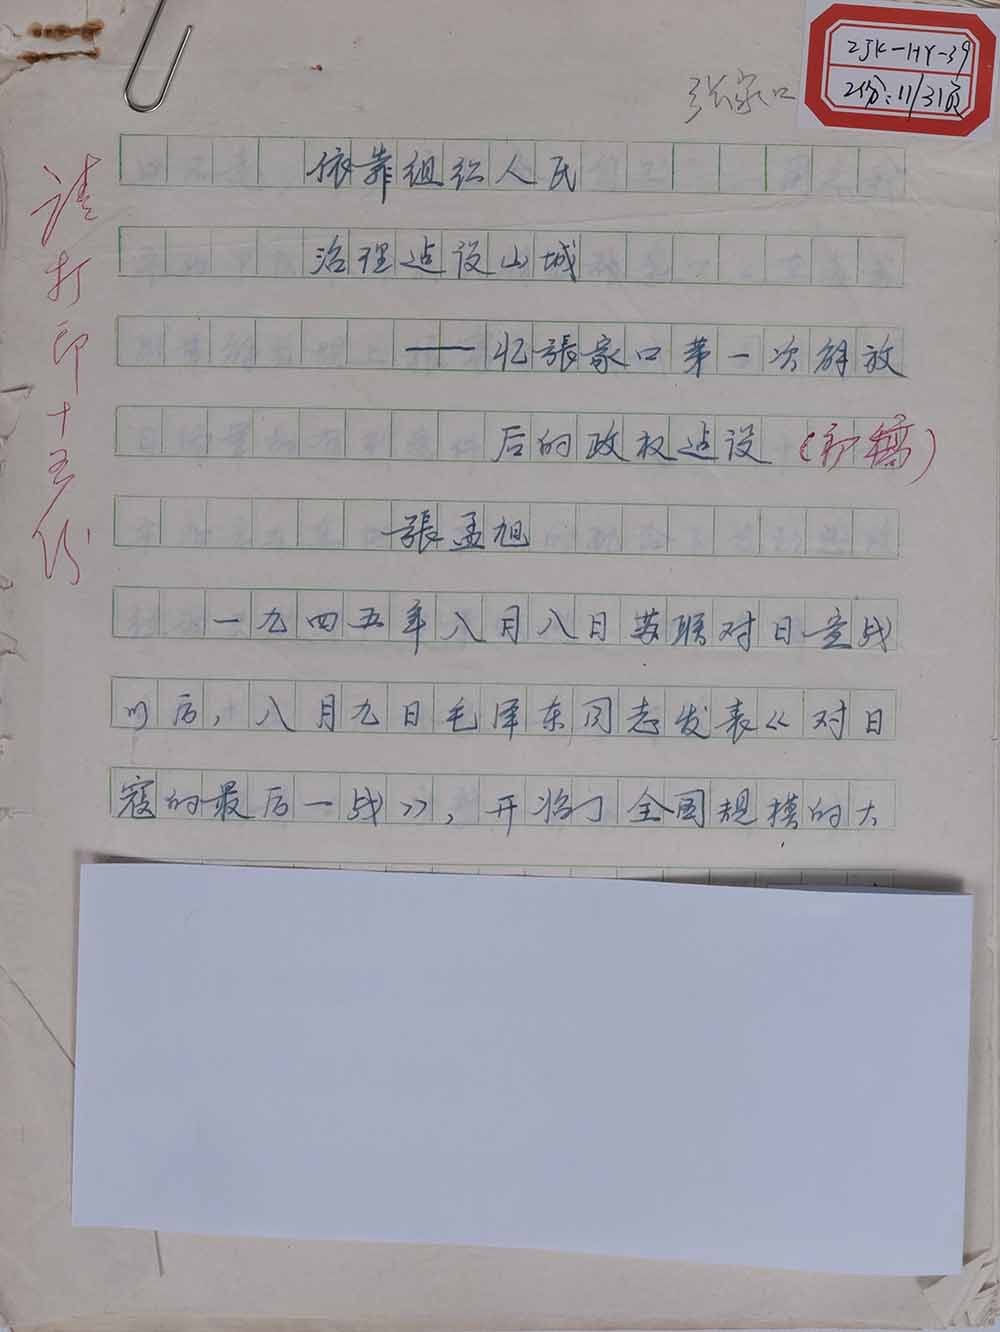 张家口
ZJK-HY-39
2份:11/31页
请打印十五份
依靠组织人民
治理建设山城
——忆張家口第一次解放
后的政权建设(初稿)
張孟旭
一九四五年八月八日苏联对日宣战
以后,八月九日毛泽东同志发表《对日
寇的最后一战》,开始了全国规模的大